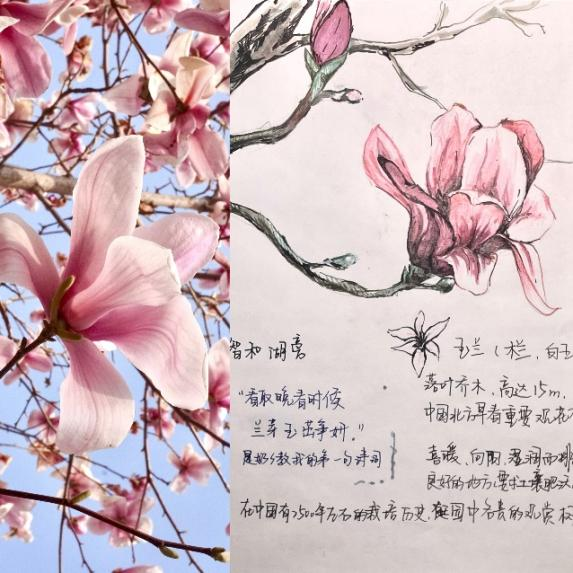 智和湖旁
玉兰（栏，白玉
落叶乔木，高达15m，
中国北方早春重要观花
"看取晚春时候
兰芽玉茁争妍。"
是奶奶教我的第一句诗词
喜暖、向阳、湿润而排
良好的地方，要求土壤肥沃
在中国有2500年左右的栽培历史，庭园中名贵的观赏树